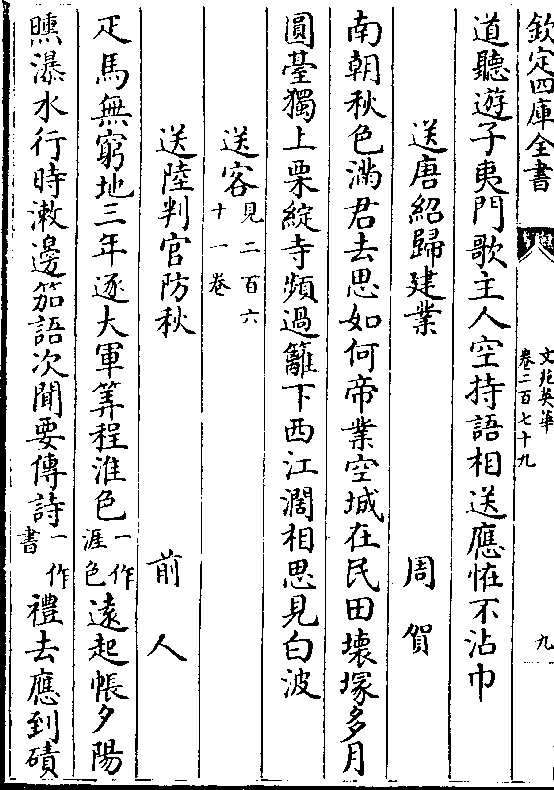 欽定四庫全書
文苑英華
卷二百七十九
九
道聽遊子夷門歌主人空持語相送應怪不沾巾
送唐紹歸建業
周賀
南朝秋色滿君去思如何帝業空城在民田壞塚多月
圓臺獨上栗綻寺頻過籬下西江濶相思見白波
送客見二百六十一卷
送陸判官防秋
前人
疋馬無窮地三年逐大軍筭程淮色一作涯色遠起帳夕陽
曛瀑水行時漱邊笳語次聞要傳詩一作書禮去應到磧